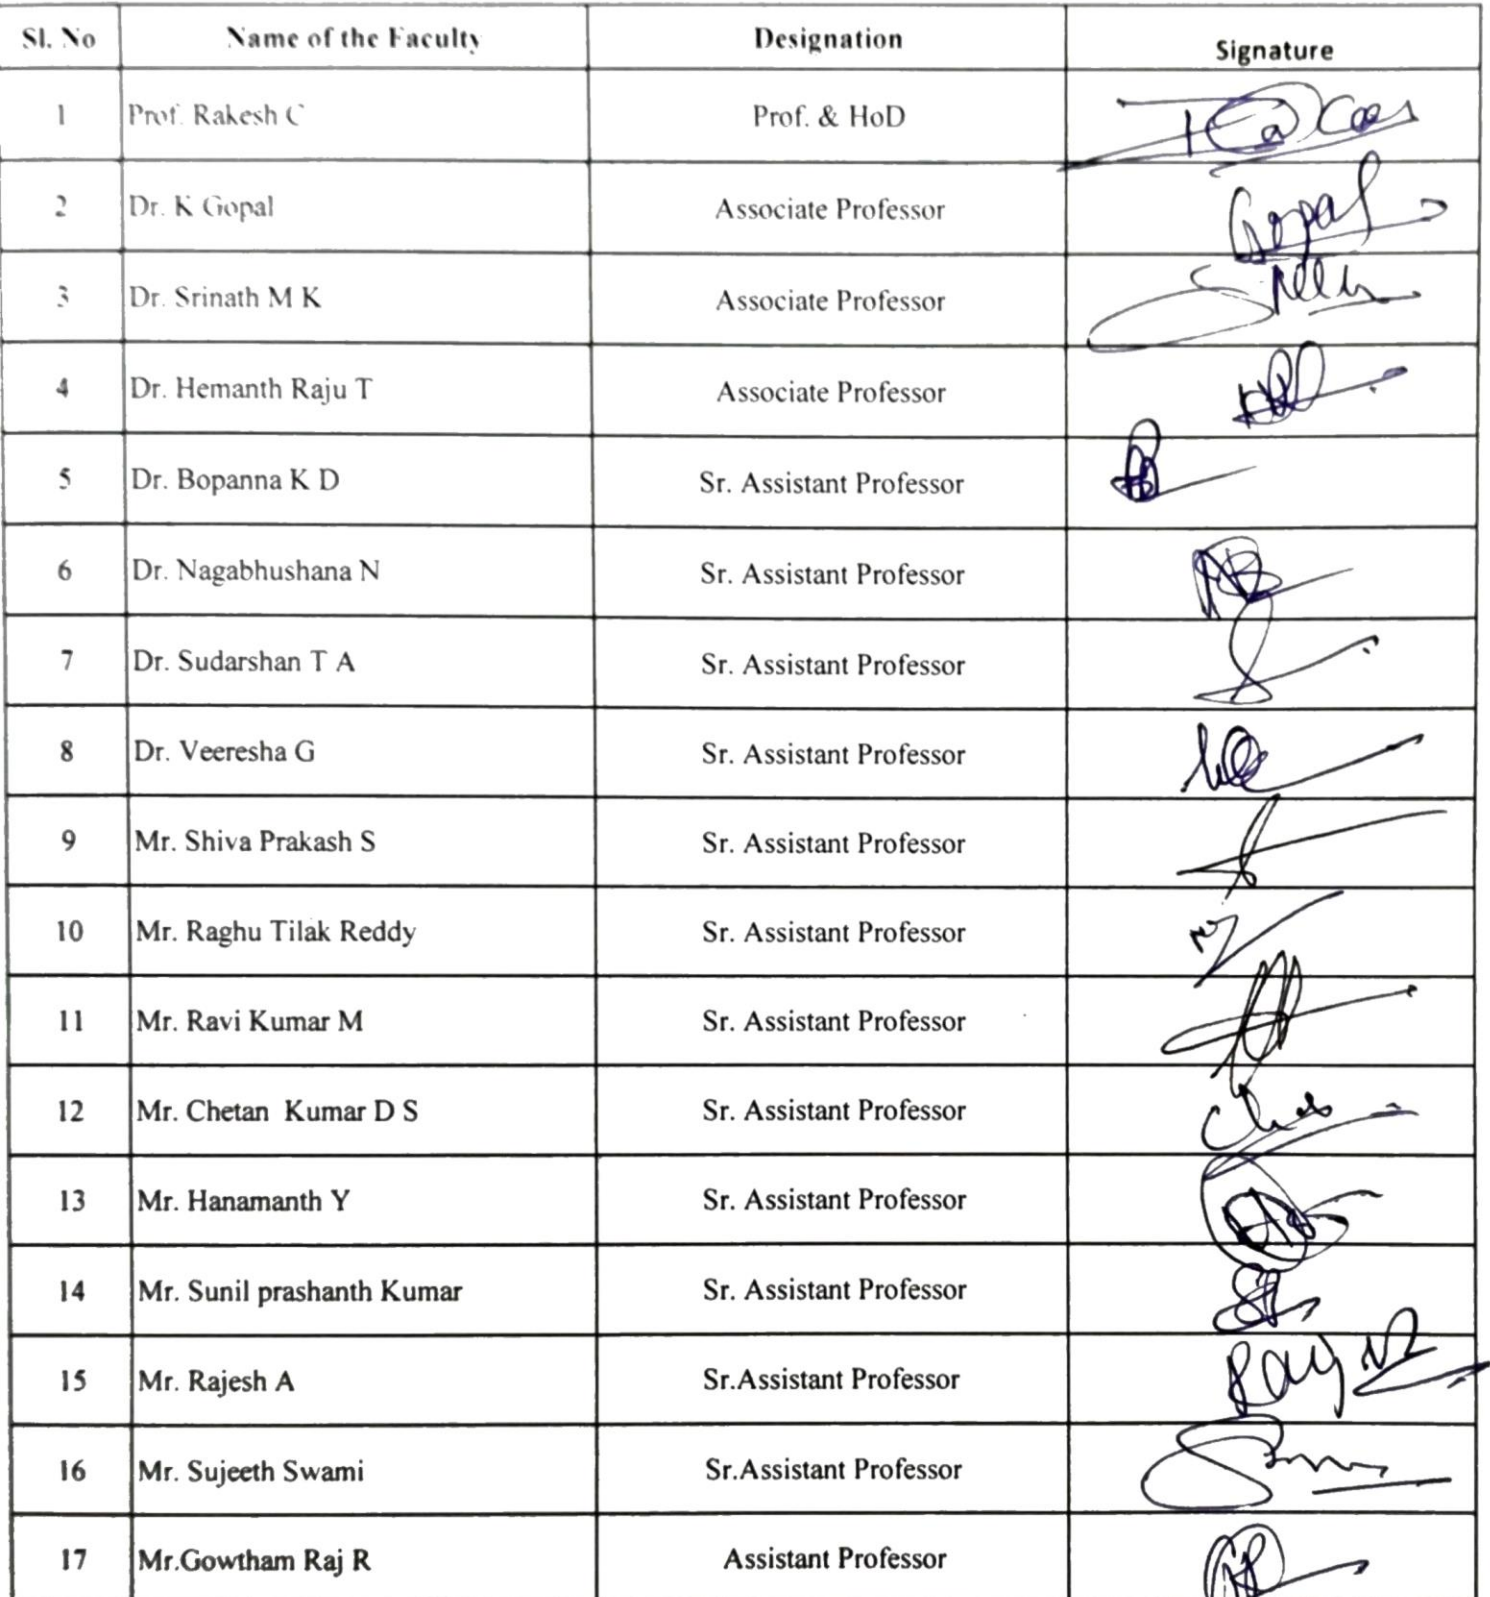 Sl. No Name of the Faculty Designation Signature
1 Prof. Rakesh C Prof. & HoD
2 Dr. K Gopal Associate Professor Gopal
3 Dr. Srinath M K Associate Professor
4 Dr. Hemanth Raju T Associate Professor
5 Dr. Bopanna K D Sr. Assistant Professor
6 Dr. Nagabhushana N Sr. Assistant Professor
7 Dr. Sudarshan T A Sr. Assistant Professor
8 Dr. Veeresha G Sr. Assistant Professor
9 Mr. Shiva Prakash S Sr. Assistant Professor
10 Mr. Raghu Tilak Reddy Sr. Assistant Professor
11 Mr. Ravi Kumar M Sr. Assistant Professor
12 Mr. Chetan Kumar D S Sr. Assistant Professor
13 Mr. Hanamanth Y Sr. Assistant Professor
14 Mr. Sunil prashanth Kumar Sr. Assistant Professor
15 Mr. Rajesh A Sr.Assistant Professor
16 Mr. Sujeeth Swami Sr.Assistant Professor
17 Mr.Gowtham Raj R Assistant Professor